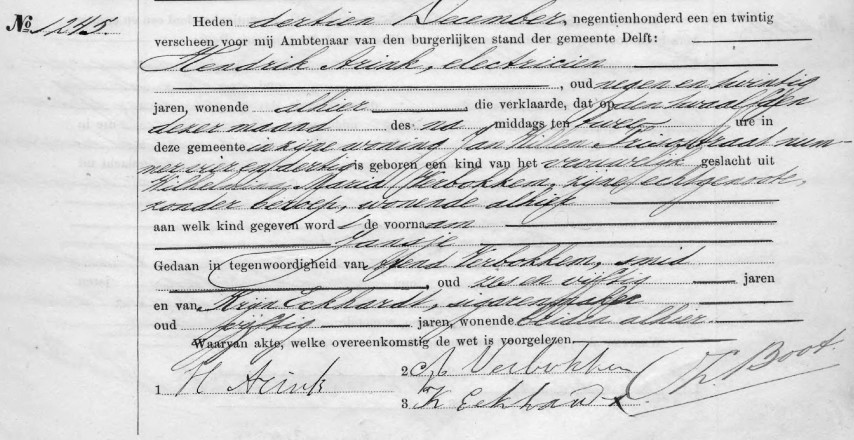 No 1245.
Heden dertien December, negentienhonderd een en twintig
verscheen voor mij Ambtenaar van den burgerlijken stand der gemeente Delft:
Hendrik Arink, electricien
, oud negen en twintig
jaren, wonende alhier, die verklaarde, dat op den twaalfden
dezer maand des na middags ten twee ure in
deze gemeente in zijne woning Jan Willem Frisostraat num-
mer vier en dertig is geboren een kind van het vrouwelijk geslacht uit
Wilhelmina Maria Verbokkem, zijne echtgenoote,
zonder beroep, wonende alhier
aan welk kind gegeven word de voornaam
Jansje
Gedaan in tegenwoordigheid van Arend Verbokkem, smid
, oud zes en vijftig jaren
en van Krijn Eckhardt, sigarenmaker
oud vijftig jaren, wonende beiden alhier.
Waarvan akte, welke overeenkomstig de wet is voorgelezen.
1 H Arink
2 A Verbokkem
3 K Eckhardt
Boot.